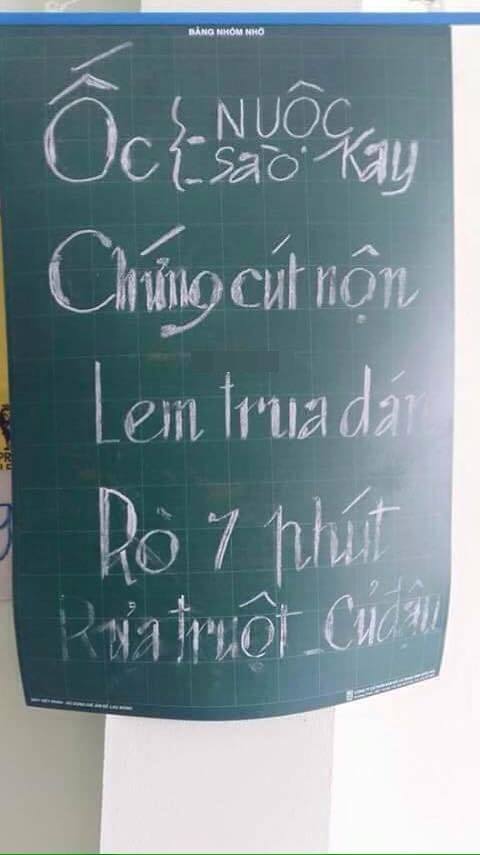 BẢNG NHÓM NHỎ
Ốc { - NUỘC
- Sào. Kay
Chứng cút nộn
Lem trua dán
Rò 7 phút
Rủa truột _ Củ đậu